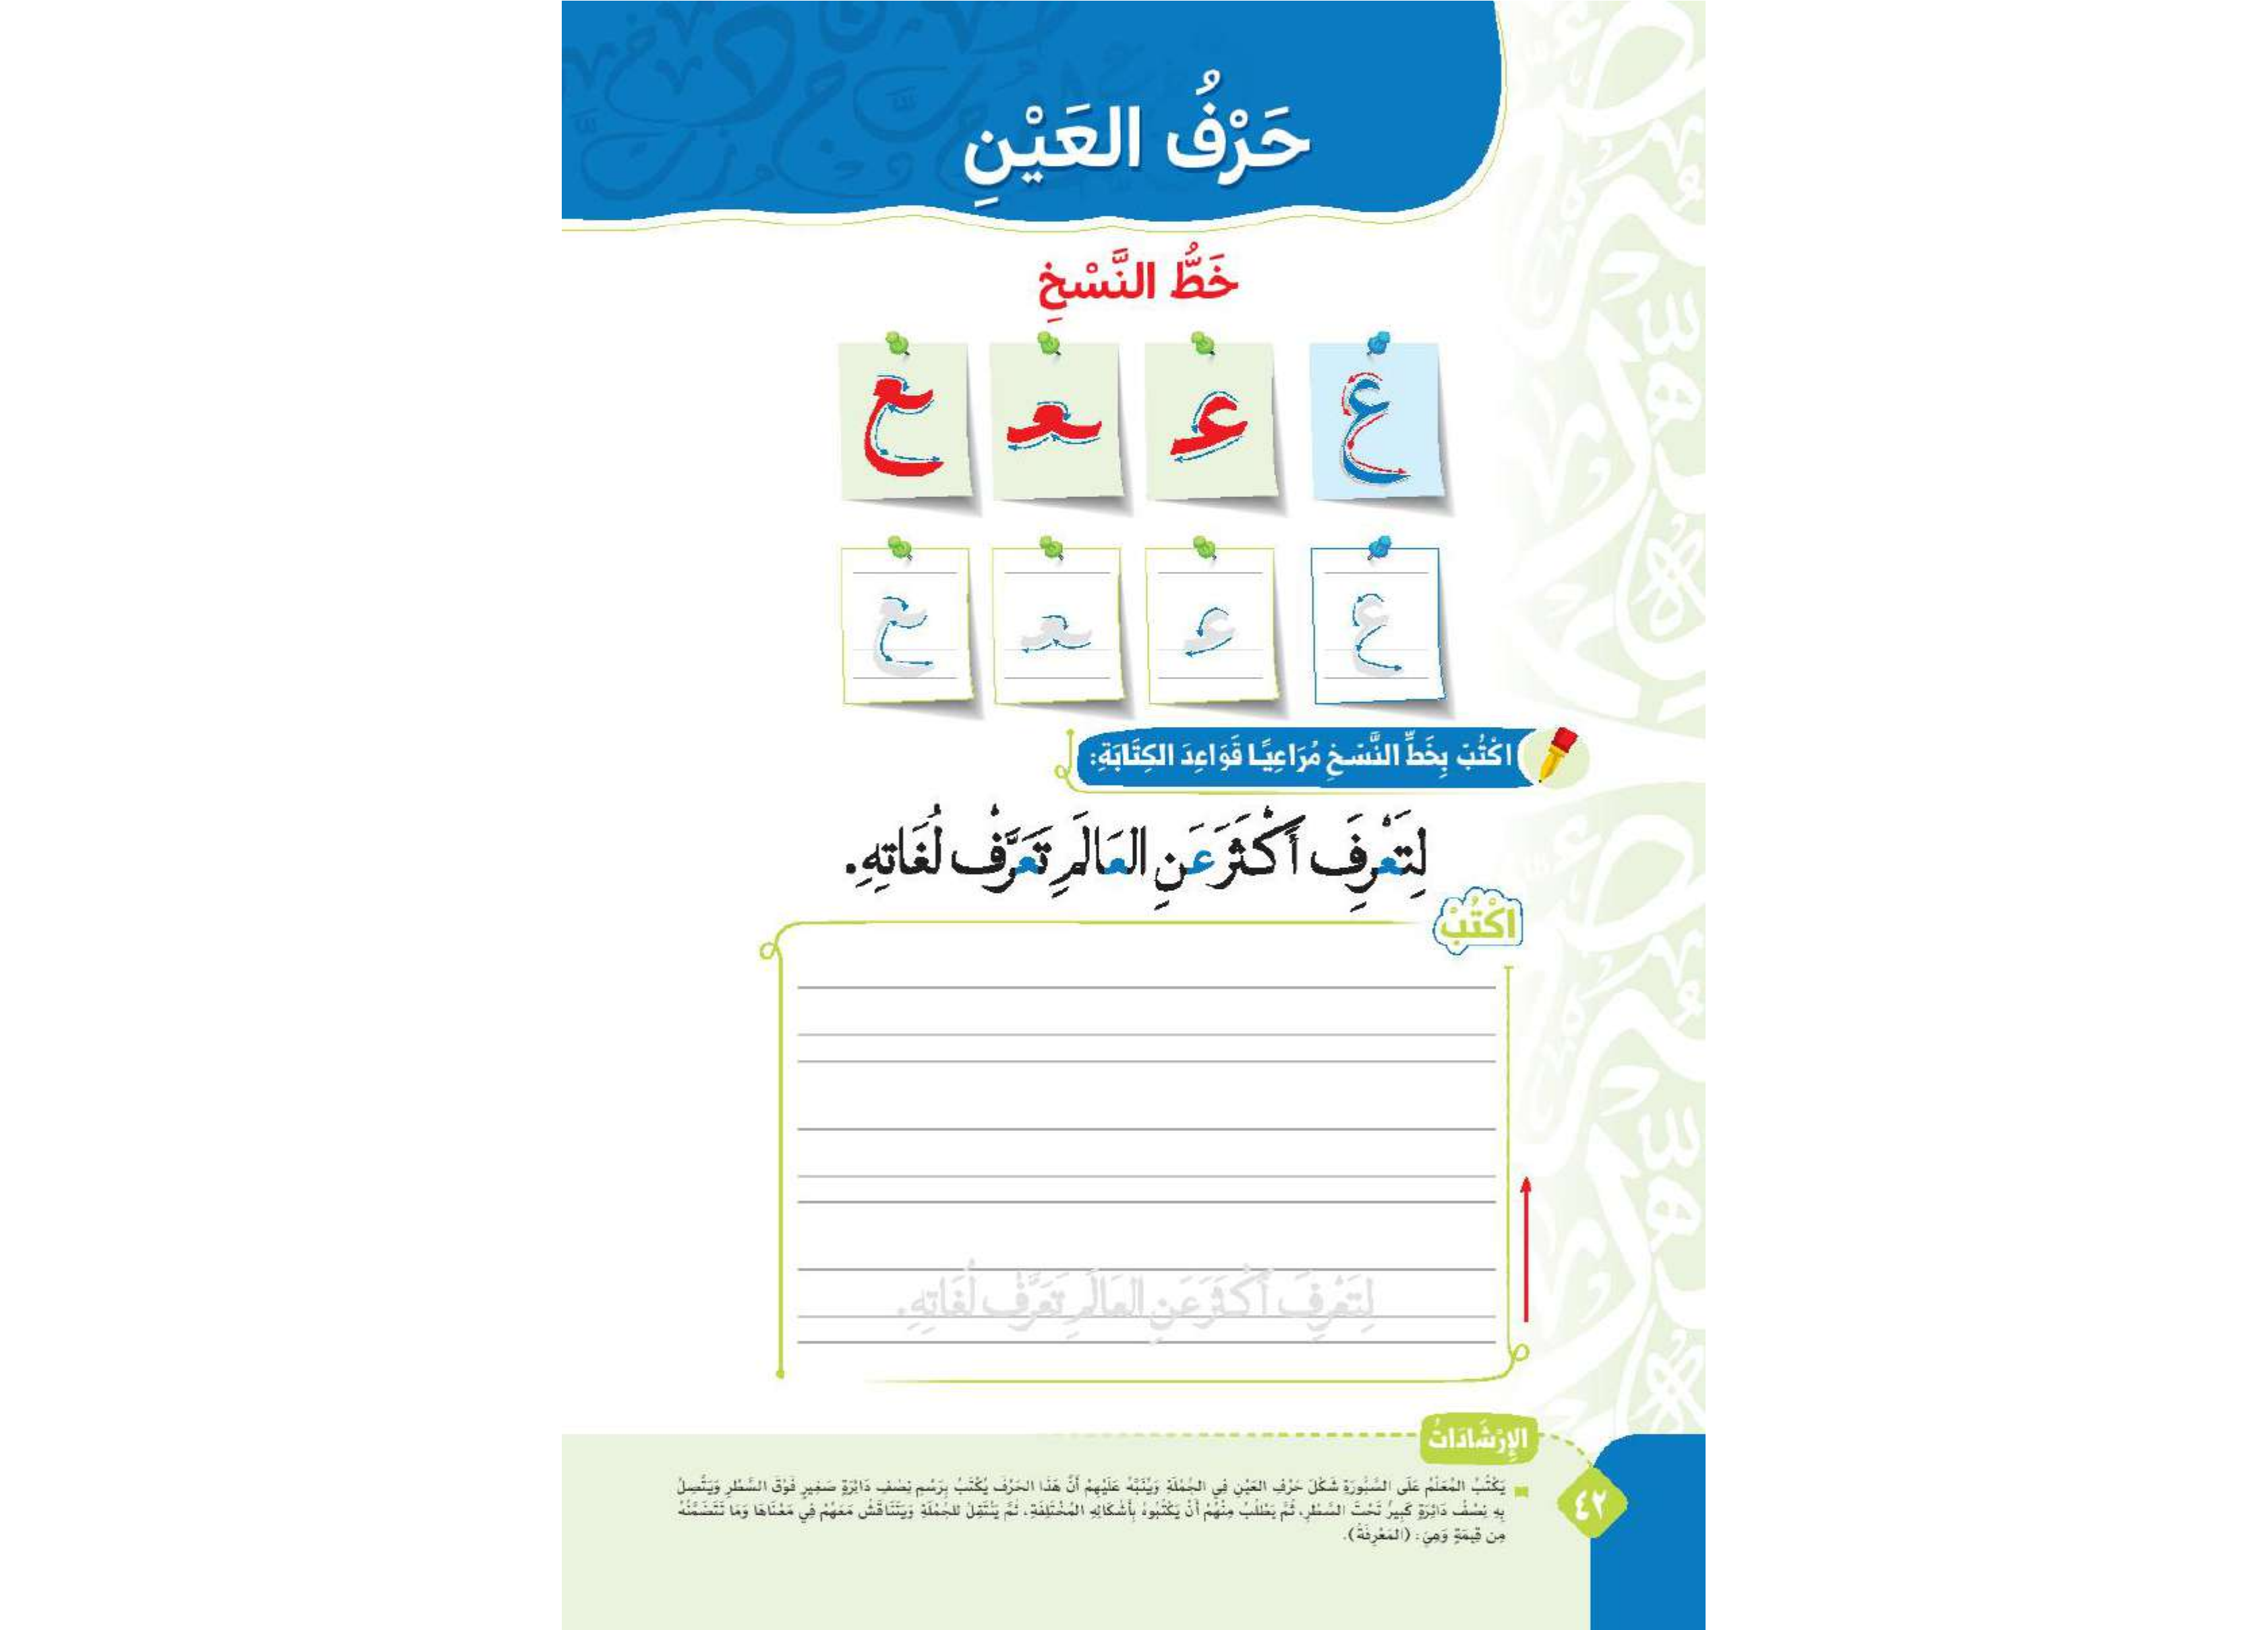 حَرْفُ العَيْنِ
خَطُّ النَّسْخِ
ع عـ ـعـ ـع
ع عـ ـعـ ـع
اكْتُبْ بِخَطِّ النَّسْخِ مُرَاعِيًا قَوَاعِدَ الكِتَابَةِ:
لِتَعْرِفَ أَكْثَرَ عَنِ العَالَمِ تَعَرَّفْ لُغَاتِهِ.
اكْتُبْ
لِتَعْرِفَ أَكْثَرَ عَنِ العَالَمِ تَعَرَّفْ لُغَاتِهِ.
الإِرْشَادَاتُ
يَكْتُبُ المُعَلِّمُ عَلَى السَّبُّورَةِ شَكْلَ حَرْفِ العَيْنِ فِي الجُمْلَةِ وَيُنَبِّهُ عَلَيْهِمْ أَنَّ هَذَا الحَرْفَ يُكْتَبُ بِرَسْمِ نِصْفِ دَائِرَةٍ صَغِيرٍ فَوْقَ السَّطْرِ وَيَتَّصِلُ
بِهِ نِصْفُ دَائِرَةٍ كَبِيرٌ تَحْتَ السَّطْرِ، ثُمَّ يَطْلُبُ مِنْهُمْ أَنْ يَكْتُبُوهُ بِأَشْكَالِهِ المُخْتَلِفَةِ، ثُمَّ يَنْتَقِلُ للجُمْلَةِ وَيَتَنَاقَشُ مَعَهُمْ فِي مَعْنَاهَا وَمَا تَتَضَمَّنُهُ
مِن قِيمَةٍ وَهِيَ: (المَعْرِفَةُ).
٤٢